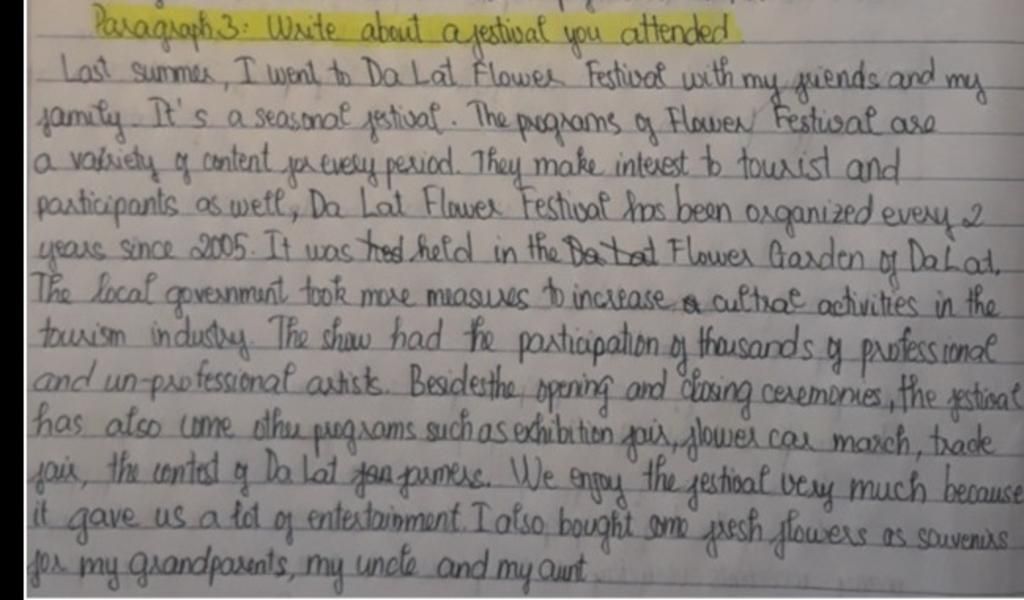 Paragraph 3: Write about a festival you attended
Last summer, I went to Da Lat Flower Festival with my friends and my
family. It's a seasonal festival. The programs of Flower Festival are
a variety of content for every period. They make interest to tourist and
participants as well, Da Lat Flower Festival has been organized every 2
years since 2005. It was held in the Da Lat Flower Garden of Da Lat.
The local government took more measures to increase cultral activities in the
tourism industry. The show had the participation of thousands of professional
and un-professional artists. Besides the opening and closing ceremonies, the festival
has also come other programs such as exhibition fair, flower car march, trade
fair, the contest of Da Lat farmers. We enjoy the festival very much because
it gave us a lot of entertainment. I also bought some fresh flowers as souvenirs
for my grandparents, my uncle and my aunt